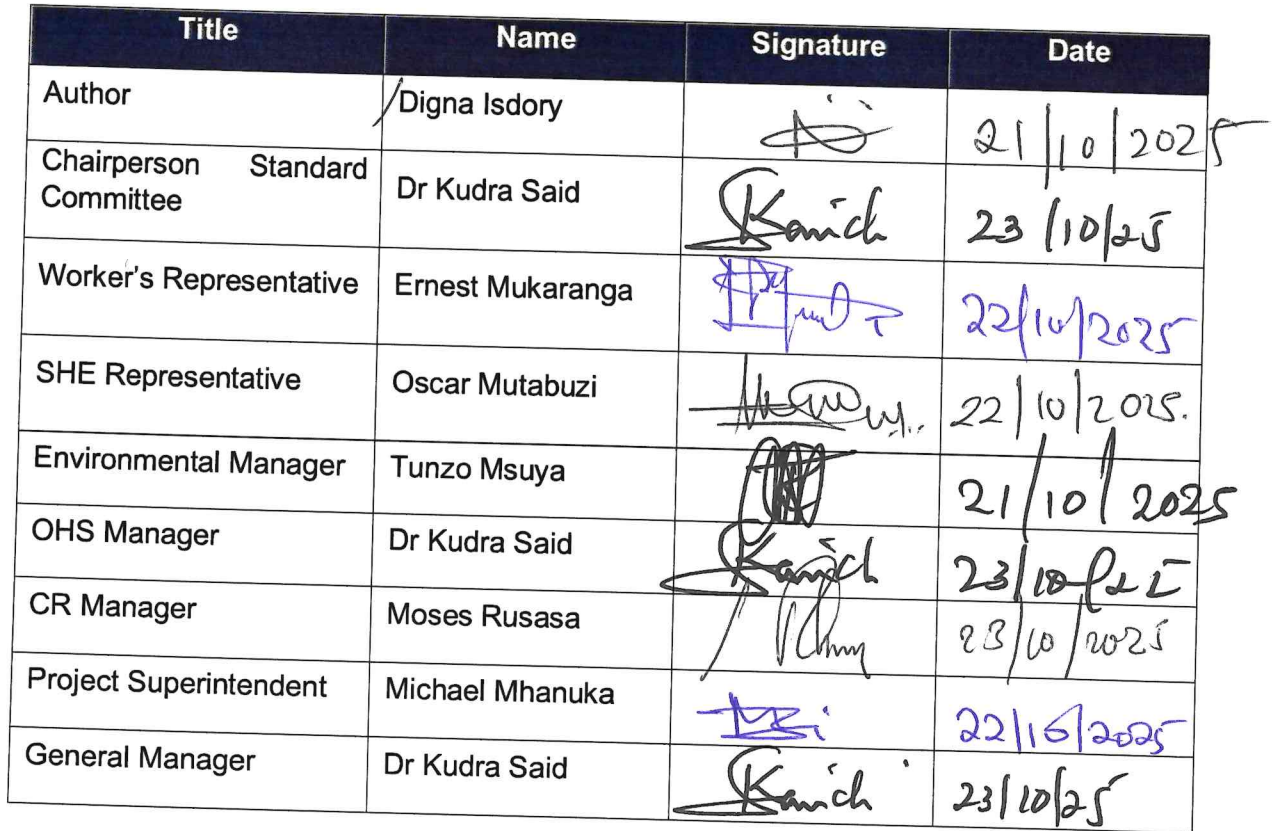 Title Name Signature Date
Author Digna Isdory 21/10/2025
Chairperson Standard
Committee Dr Kudra Said 23/10/25
Worker's Representative Ernest Mukaranga 22/10/2025
SHE Representative Oscar Mutabuzi 22/10/2025.
Environmental Manager Tunzo Msuya 21/10/2025
OHS Manager Dr Kudra Said 23/10/25
CR Manager Moses Rusasa 23/10/2025
Project Superintendent Michael Mhanuka 22/10/2025
General Manager Dr Kudra Said 23/10/25